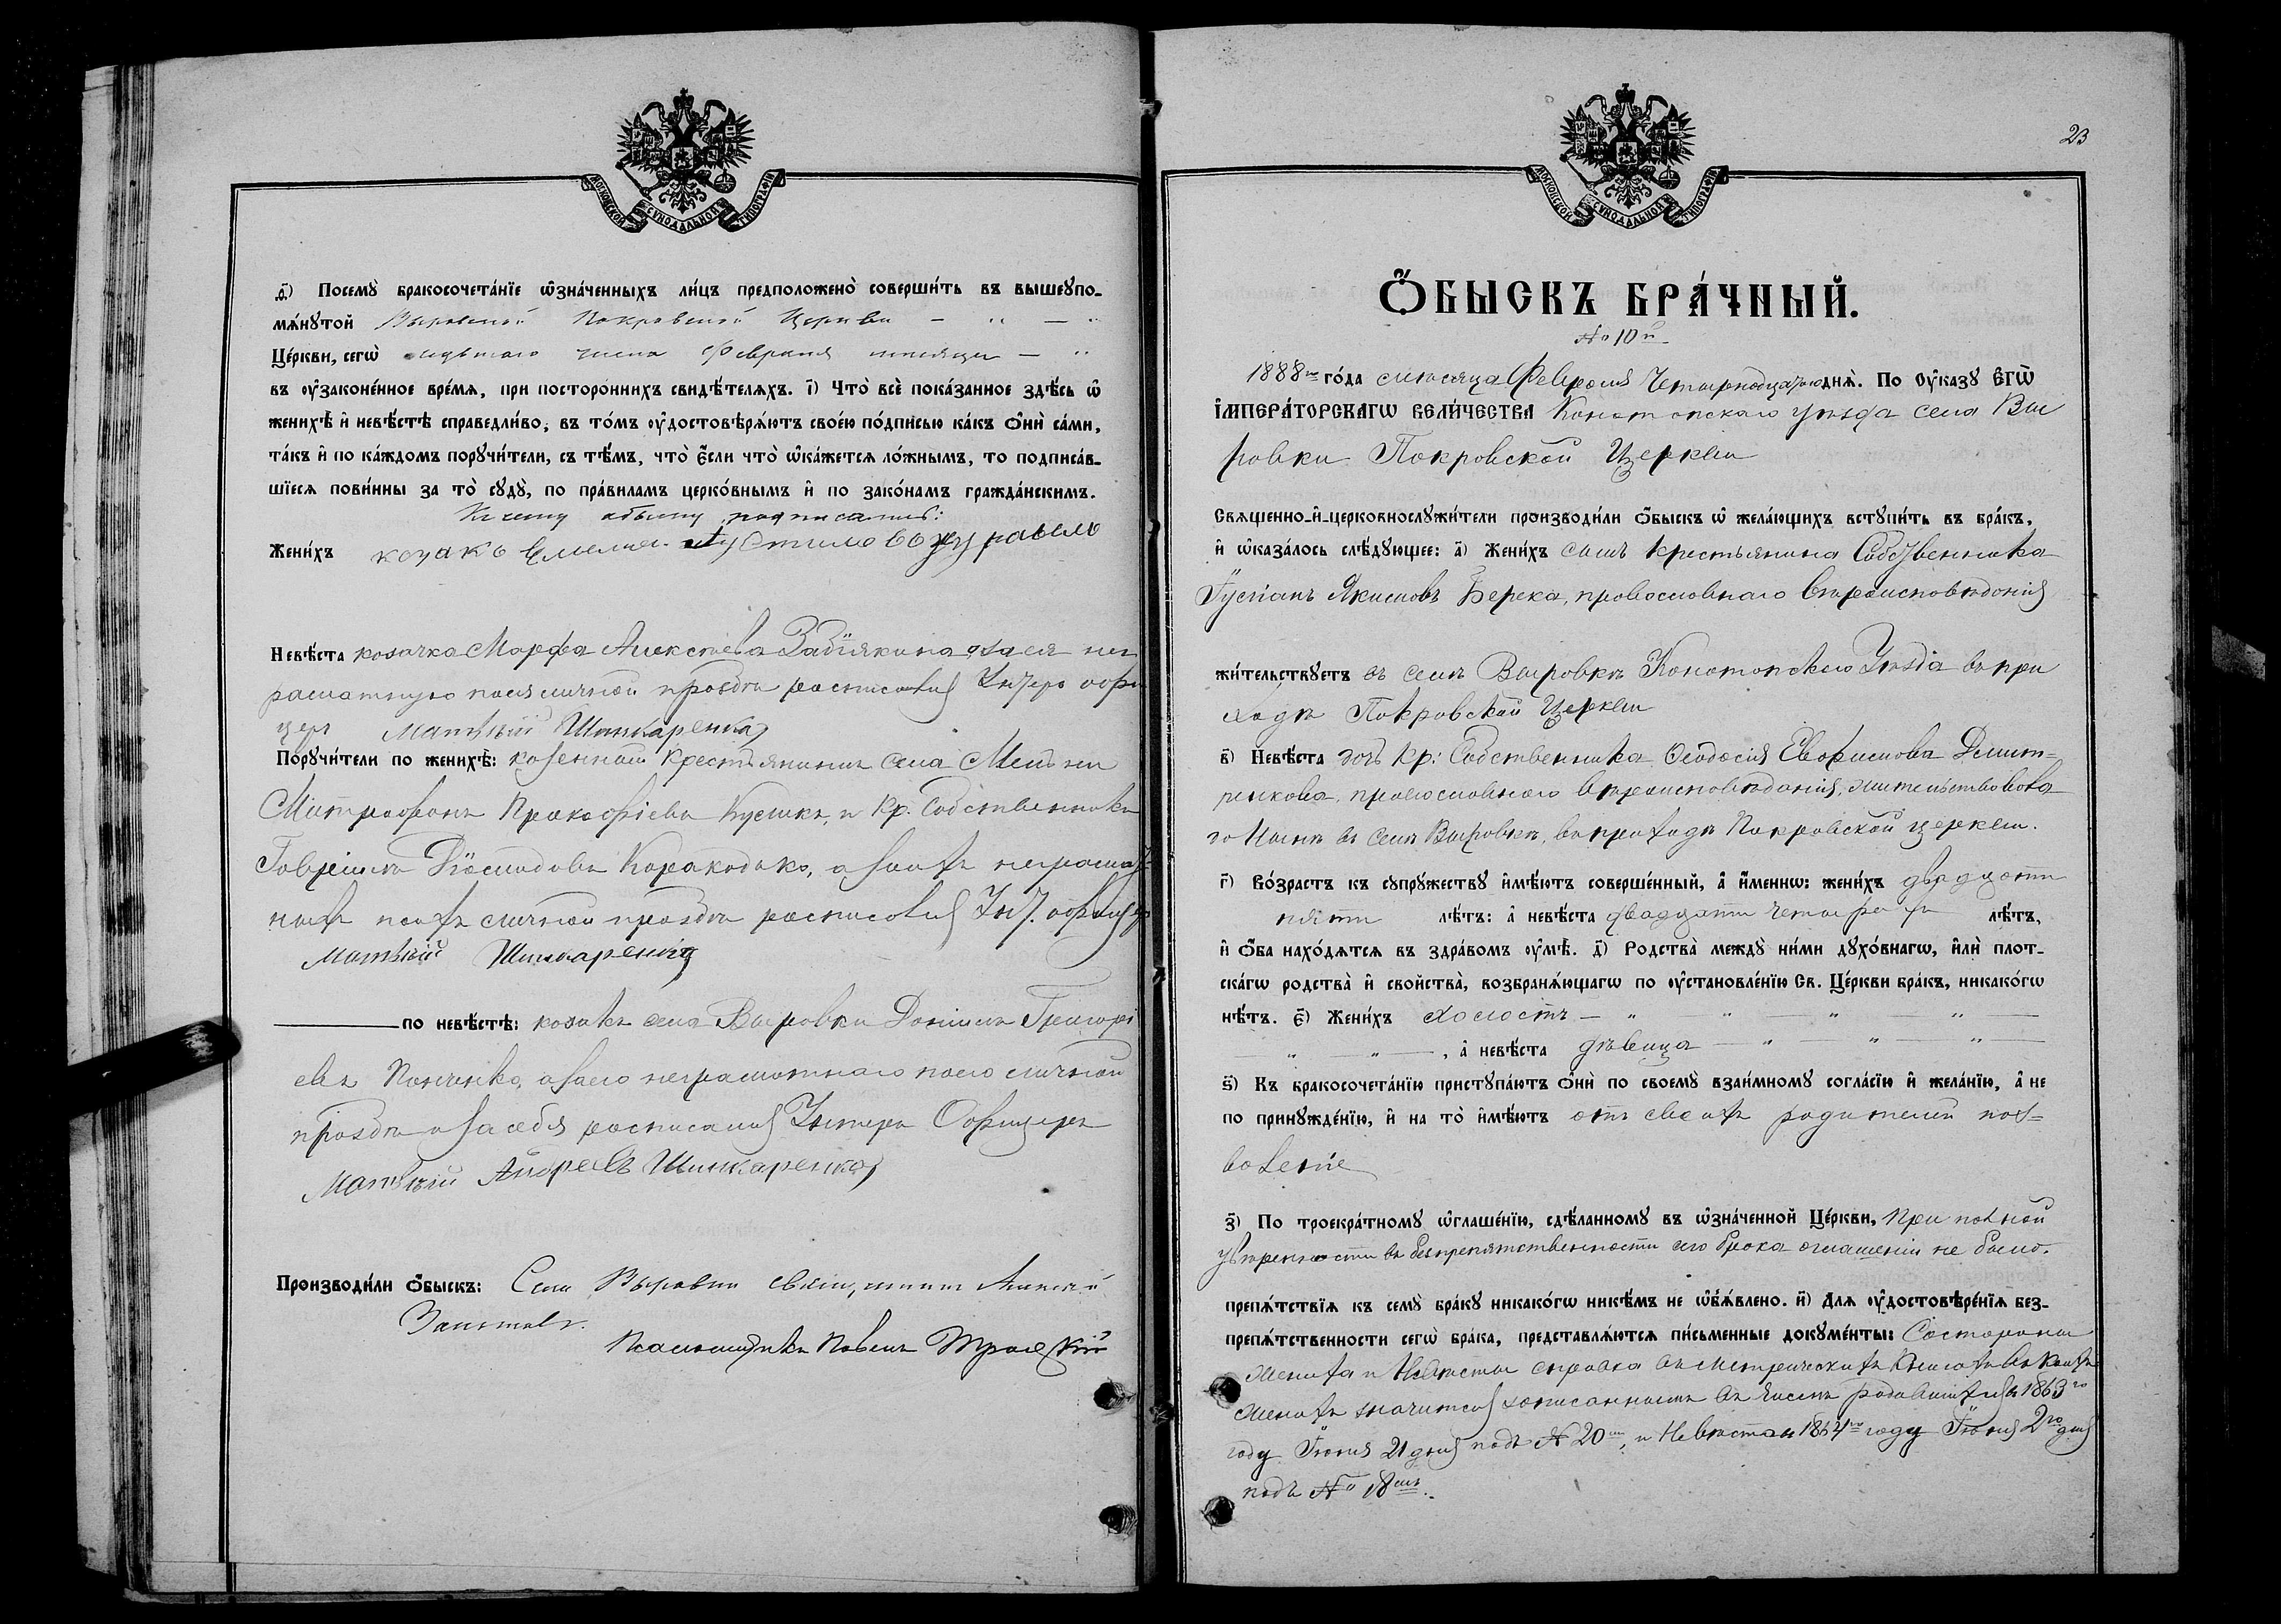 МОСКОВСКОЙ СѴНОДАЛЬНОЙ ТИПОГРАФІИ
ѳ҃) Посемꙋ̀ бракосочета́нїе ѡ҆зна́ченныхъ ли́цъ предположено̀ соверши́ть въ вышеꙋпо-
мѧ́нꙋтой Выровской Покровской Церкви
Це́ркви, сегѡ̀ седьмаго числа Февраля месяца
въ ᲂу҆законе́нное вре́мѧ, при посторо́ннихъ свидѣ́телѧхъ. і҃) Что̀ всѐ пока́занное здѣ́сь ѡ҆
женихѣ̀ и҆ невѣ́стѣ справедли́во, въ то́мъ ᲂу҆достовѣрѧ́ютъ свое́ю по́дписью ка́къ ѻ҆нѝ са́ми,
та́къ и҆ по ка́ждомъ порꙋчи́тели, съ тѣ́мъ, что̀ є҆́сли что̀ ѡ҆ка́жетсѧ ло́жнымъ, то подписа́в-
шїесѧ пови́нны за то̀ сꙋдꙋ̀, по пра́виламъ церко́внымъ и҆ по зако́намъ гражда́нскимъ.
К сему обыску подписались:
Жени́хъ козакъ
Невѣ́ста козачка Марфа Алексеева Забіякина, а за ея не
граматную по ея личной прозбе росписался Унтеръ офи
церъ Матвѣй Шинкаренко
Порꙋчи́тели по женихѣ̀: козенный Крестьянинъ села
Митрофанъ Прокофіевъ и Кр. Собственникъ
Гавріилъ а за ихъ неграмат-
ныхъ по ихъ личной прозбе росписался Унт. офицеръ
Матвѣй Шинкаренко
по невѣ́стѣ: козакъ села Выровки Даніилъ Григорі
евъ Панченко, а за его неграмотнаго по его личной
прозбе и за себя росписался Унтеръ Офицеръ
Матвѣй Андреевъ Шинкаренко
Производи́ли ѻ҆́быскъ: Села Выровки священникъ Алексѣй
Псаломщикъ Павелъ Троицкій
23
МОСКОВСКОЙ СѴНОДАЛЬНОЙ ТИПОГРАФІИ
Ѻ҆́БЫСКЪ БРА́ЧНЫЙ.
№ 10й
1888го го́да месяца Февраля Четырнадцатого днѧ̀. По Оу҆ка́зꙋ Є҆ГѠ̀
І҆МПЕРА́ТОРСКАГѠ ВЕЛИ́ЧЕСТВА Конотопскаго уезда села Вы
ровки Покровской Церкви
Свѧщенно-и҆-церковнослꙋжи́тели производи́ли ѻ҆́быскъ ѡ҆ жела́ющихъ встꙋпи́ть въ бра́къ,
и҆ ѡ҆каза́лось слѣ́дꙋющее: а҃) Жени́хъ сынъ крестьянина Собственника
Якимовъ Берека, православнаго Вероисповедонія
жи́тельствꙋетъ въ селе Выровке Конотопскаго Уезда въ при
ходе Покровской Церкви
в҃) Невѣ́ста дочь Кр: Собственника Феодосія Евфимова Дмит-
ренкова, православного Вероисповедонія, жительствовова
до Ныне въ селе Выровке, въ приходе Покровской церкви.
г҃) Во́зрастъ къ сꙋпрꙋ́жествꙋ и҆мѣ́ютъ соверше́нный, а҆ и҆́меннѡ: жени́хъ двадцати
пяти лѣ́тъ: а҆ невѣ́ста двадцати четырехъ лѣ́тъ,
и҆ ѻ҆́ба нахо́дѧтсѧ въ здра́вомъ ᲂу҆мѣ̀. д҃) Родства̀ междꙋ̀ ни́ми дꙋхо́внагѡ, и҆лѝ плот-
ска́гѡ родства̀ и҆ свойства̀, возбранѧ́ющагѡ по ᲂу҆становле́нїю Св. Це́ркви бра́къ, никако́гѡ
нѣ́тъ. є҃) Жени́хъ холостъ
, а҆ невѣ́ста девица
ѕ҃) Къ бракосочета́нїю пристꙋпа́ютъ ѻ҆нѝ по своемꙋ̀ взаи́мномꙋ согла́сїю и҆ жела́нїю, а҆ не
по принꙋжде́нїю, и҆ на то̀ и҆мѣ́ютъ отъ своихъ родителей поз-
воленіе
з҃) По троекра́тномꙋ ѡ҆глаше́нїю, сдѣ́ланномꙋ въ ѡ҆зна́ченной Це́ркви, При полной
уверенности въ безпрепятственности сего брака оглашеніи не было.
препѧ́тствїѧ къ семꙋ̀ бра́кꙋ никако́гѡ никѣ́мъ не ѡ҆б̾ѧ́влено. и҃) Длѧ ᲂу҆достовѣре́нїѧ без-
препѧ́тственности сегѡ̀ бра́ка, представлѧ́ютсѧ пи́сьменные докꙋме́нты: Состороны
Жениха и Невесты справка въ Метрическихъ Книгахъ въ коихъ
Женихъ значится записаннымъ въ числе родившихся 1863го
году Іюня 21 дня подъ № 20мъ, и Невеста 1864го году Іюня 2го дня
подъ № 18мъ.